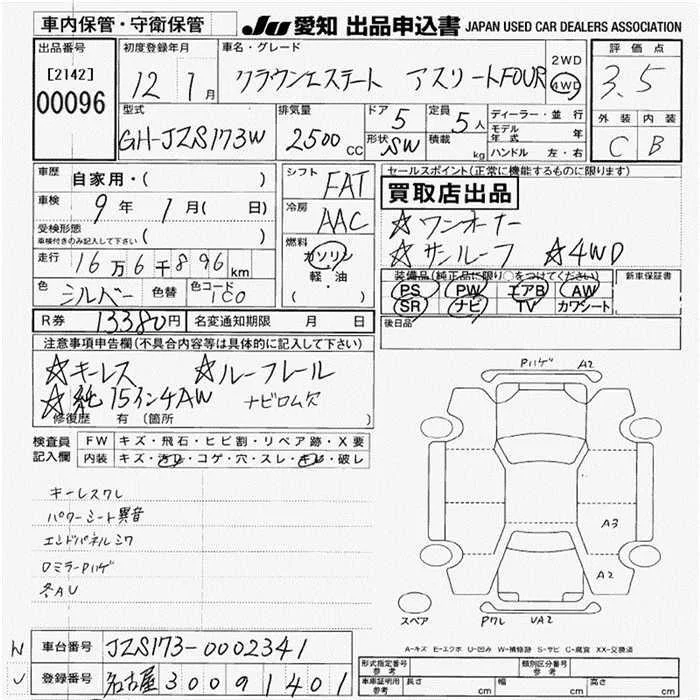 車内保管・守衛保管
JU 愛知 出品申込書 JAPAN USED CAR DEALERS ASSOCIATION
出品番号 初度登録年月 車名・グレード 2WD 評価点
[2142] 12 1月 クラウンエステート アスリートFOUR 4WD 3.5
00096
型式 排気量 ドア 5 定員 5人 ディーラー・並行 外装 内装
GH-JZS173W 2500CC 形状 SW 積載 kg モデル年式 年 C B
ハンドル 左・右
車歴 自家用・( ) シフト FAT セールスポイント(正常に機能するものに限ります)
車検 9年 1月( 日) 冷房 AAC 買取店出品
受検形態 ( ) ☆ワンオーナー
車検付きのみ記入して下さい
燃料 ガソリン ☆サンルーフ ☆4WD
走行 16万6千896km 軽・油 装備品(純正品に限り○をつけてください) 新車保証書
色 シルバー 色替 色コード 1C0 ( ) PS PW エアB AW
SR ナビ TV カワシート
R券 13380円 名変通知期限 月 日 後日品
注意事項申告欄(不具合内容等は具体的に記入して下さい)
☆キーレス ☆ルーフレール
☆純15インチAW ナビロム欠
修復歴 有 (箇所 )
検査員記入欄 FW キズ・飛石・ヒビ割・リペア跡・X要
内装 キズ・汚レ・コゲ・穴・スレ・キレ・破レ
キーレスワレ
パワーシート異音
エンドパネルシワ
Dミラー Pハゲ
冬AU
Pハゲ A2
A3
A2
スペア
Pワレ UA2
A-キズ E-エクボ U-凹み W-補修跡 S-サビ C-腐食 XX-交換済
N 車台番号 JZS173-0002341
U 登録番号 名古屋 300 9 1401
形式指定番号 参考 類別区分番号 参考
車庫証明用 参考 長さ cm 幅 cm 高さ cm